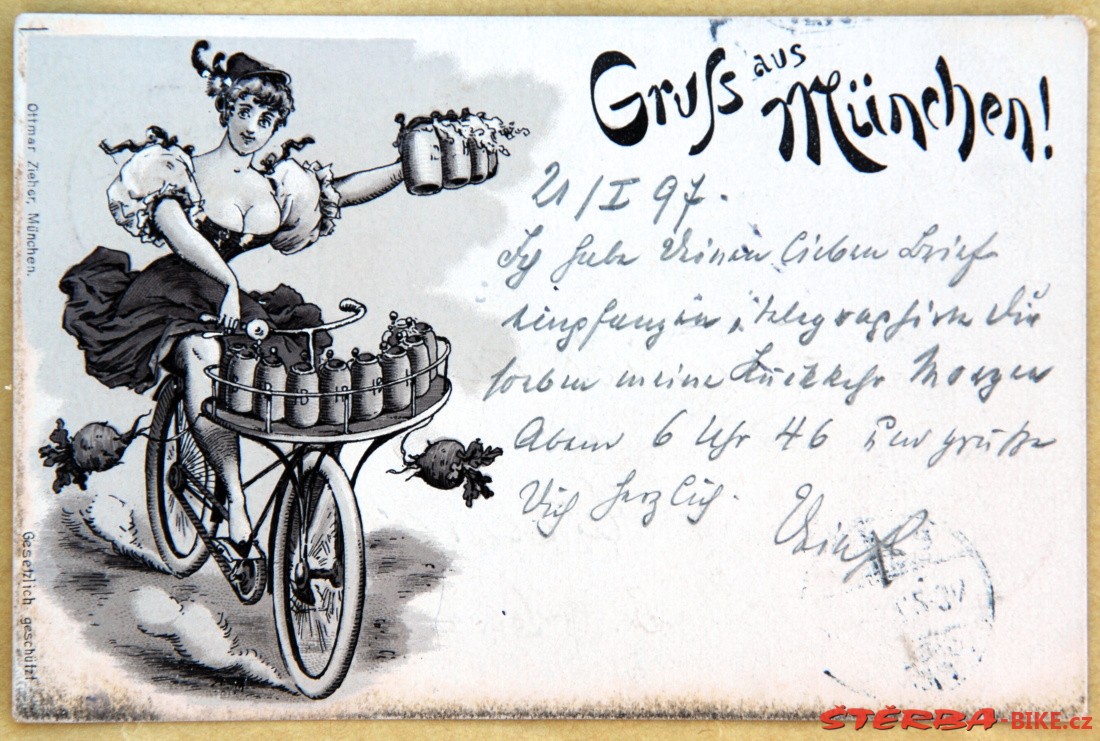 Gruss aus München!
21/I 97.
Ich habe Deinen lieben Brief
empfangen u. telegraphire Dir
soeben meine Rückkehr Morgen
Abend 6 Uhr 46 und grüße
Dich herzlich.
Ottmar Zieher, München.
Gesetzlich geschützt
HB
ŠTĚRBA-BIKE.cz